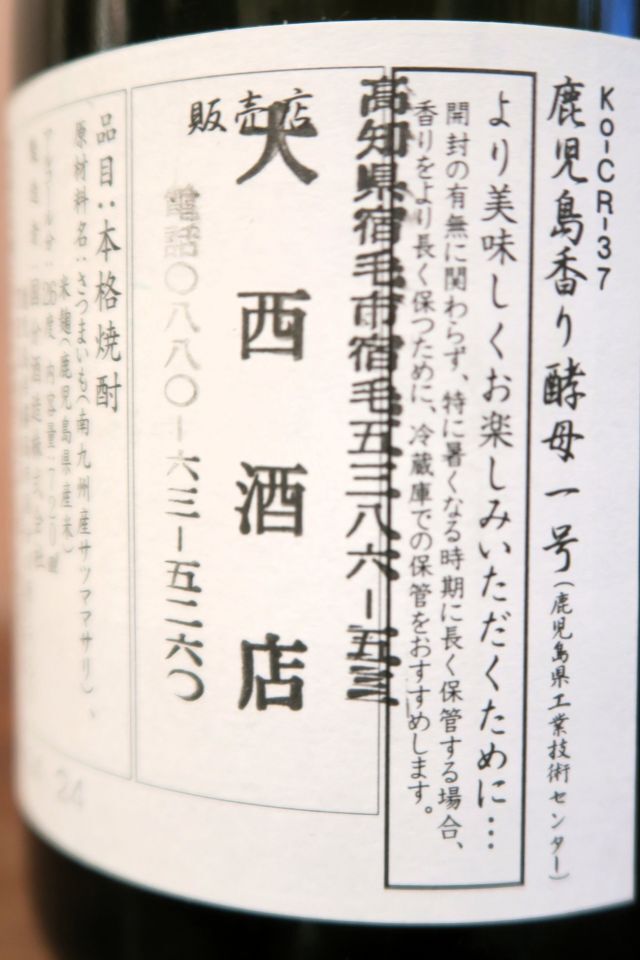 Ko-CR-37
鹿児島香り酵母一号(鹿児島県工業技術センター)
より美味しくお楽しみいただくために…
開封の有無に関わらず、特に暑くなる時期に長く保管する場合、
香りをより長く保つために、冷蔵庫での保管をおすすめします。
高知県宿毛市宿毛五三八六ー五三
販売店
大西酒店
電話〇八八〇ー六三ー五二六〇
品目:本格焼酎
原材料名:さつまいも(南九州産サツママサリ)、
米麹(鹿児島県産米)
アルコール分:26度 内容量:720ml
製造者:国分酒造株式会社
24